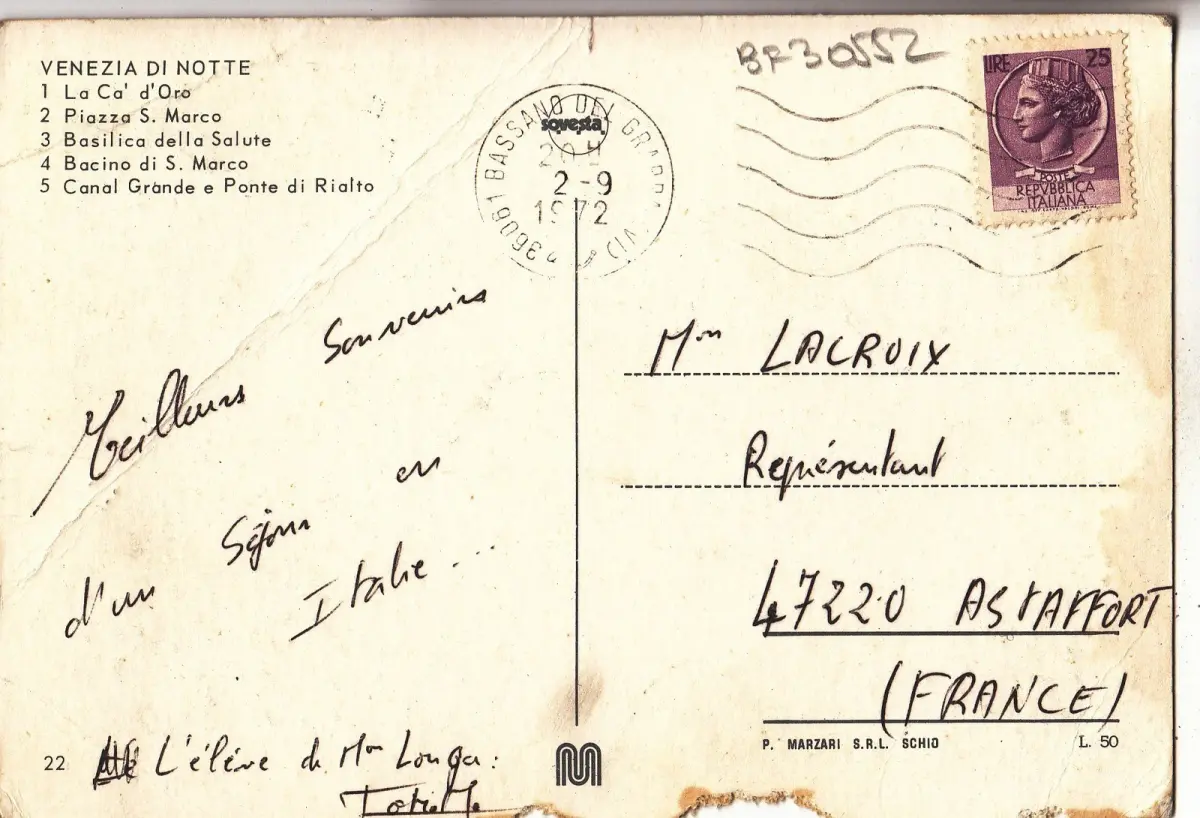 VENEZIA DI NOTTE
1 La Ca' d'Oro
2 Piazza S. Marco
3 Basilica della Salute
4 Bacino di S. Marco
5 Canal Grande e Ponte di Rialto
BF30552
36061 BASSANO DEL GRAPPA (VI)
sovesta
20 H
2-9
1972
LIRE 25
POSTE
REPVBBLICA
ITALIANA
Meilleurs Souvenirs
d'un Séjour en
Italie...
L'élève de Mon Longa:
Mon LACROIX
Représentant
47220 ASTAFFORT
(FRANCE)
22
P. MARZARI S.R.L. SCHIO
L. 50